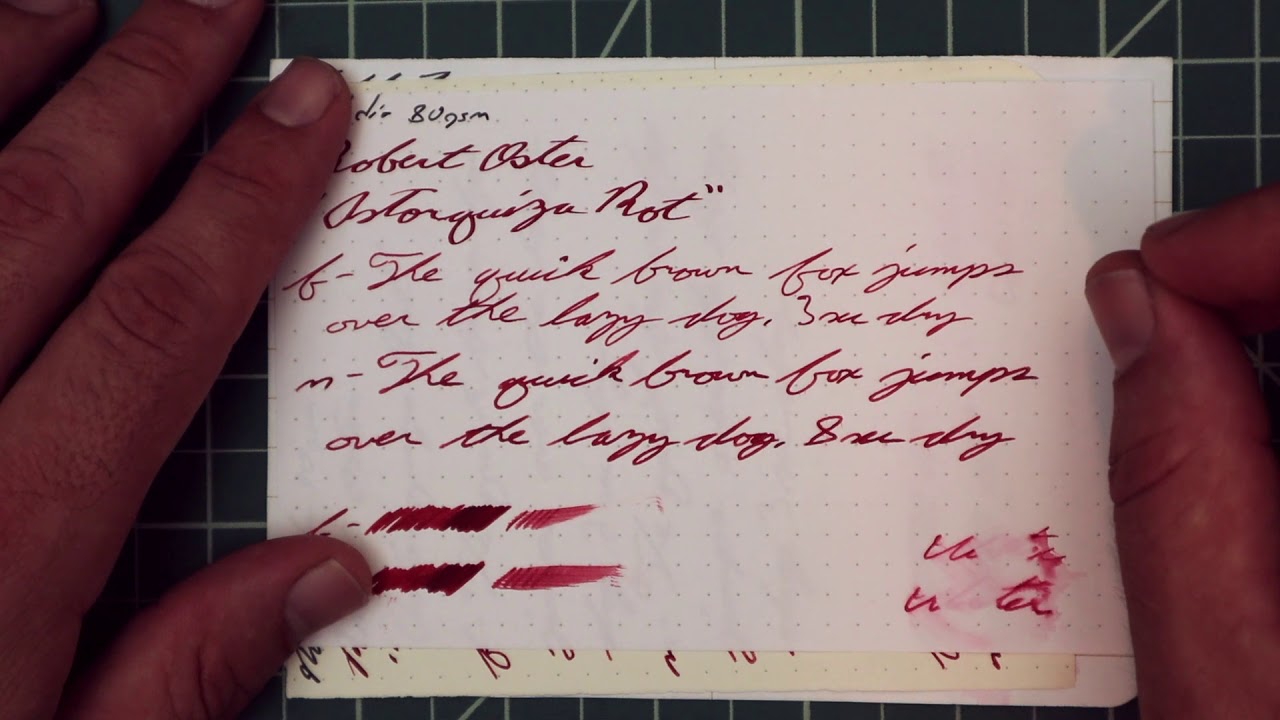 80gsm
Robert Oster
"Astorquiza Rot"
f- The quick brown fox jumps
over the lazy dog. 3 sec dry
m- The quick brown fox jumps
over the lazy dog. 8 sec dry
f-